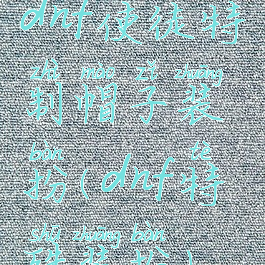 dnf使徒特
zhì mào zǐ zhuāng
制帽子装
bàn tè
扮(dnf特
shū zhuāng bàn
殊装扮)